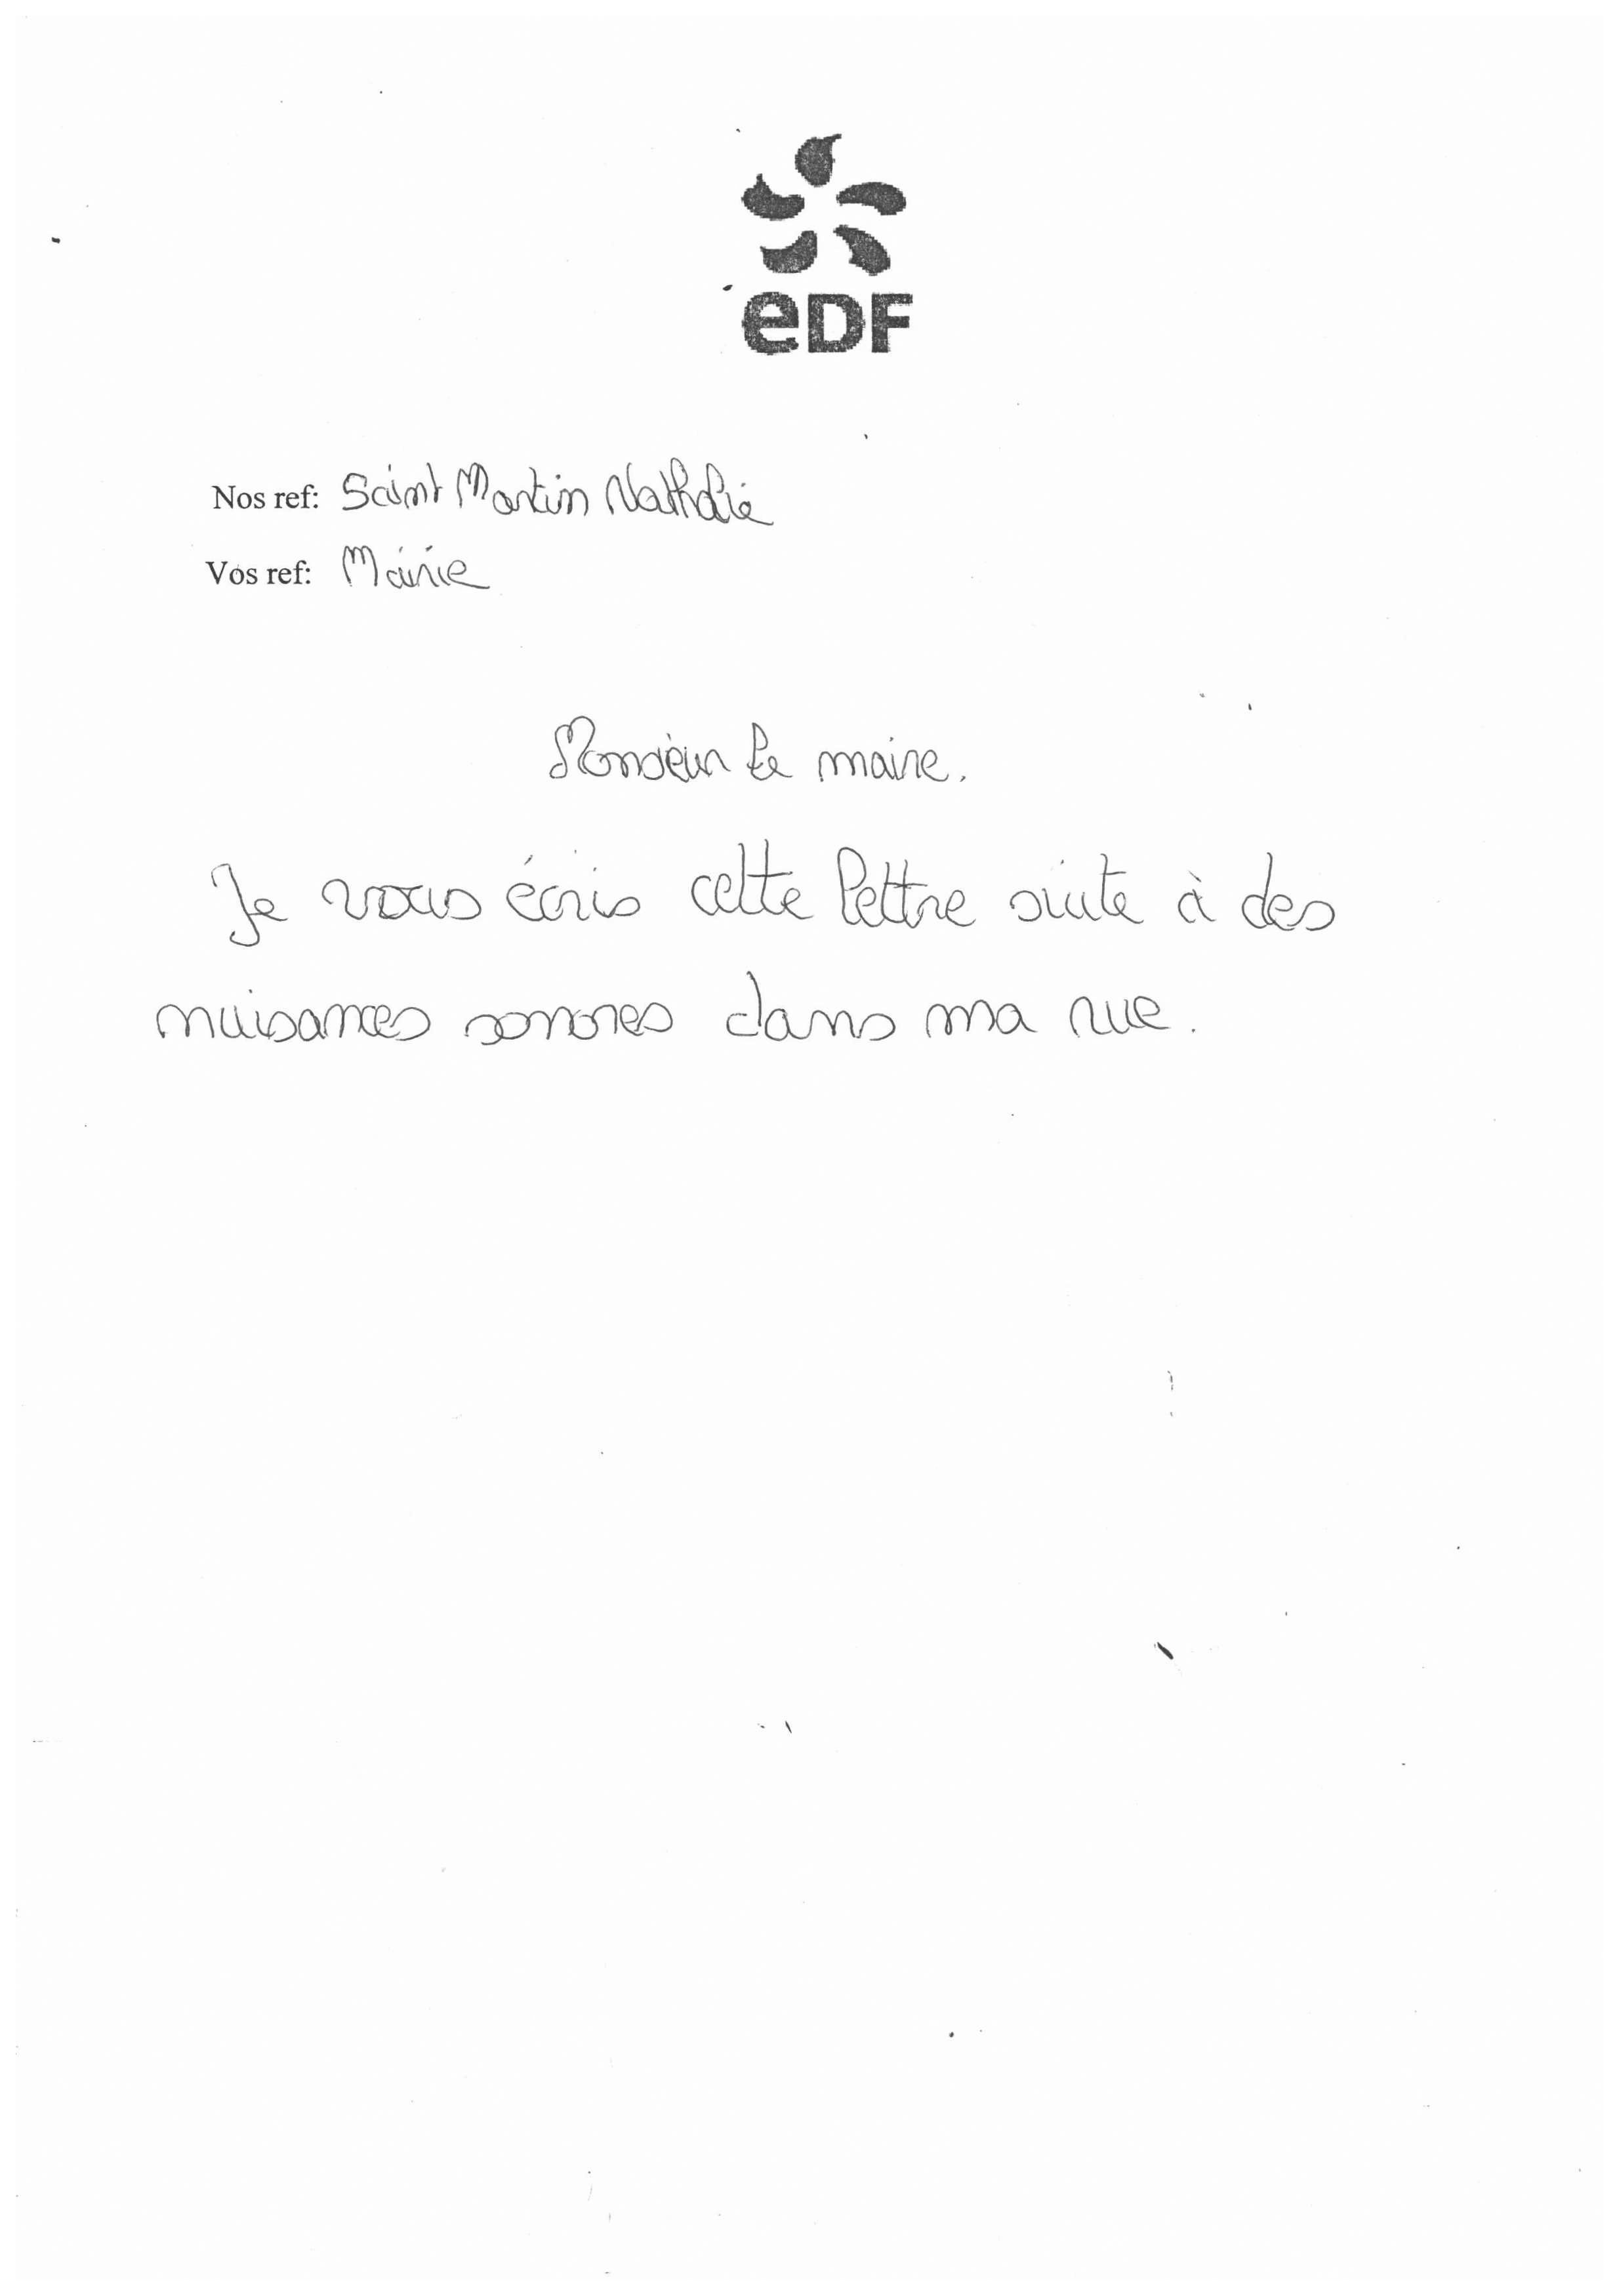 eDF
Nos ref: Saint Martin Nathalie
Vos ref: Mairie
Monsieur le maire.
Je vous écris cette lettre suite à des
nuisances sonores dans ma rue.